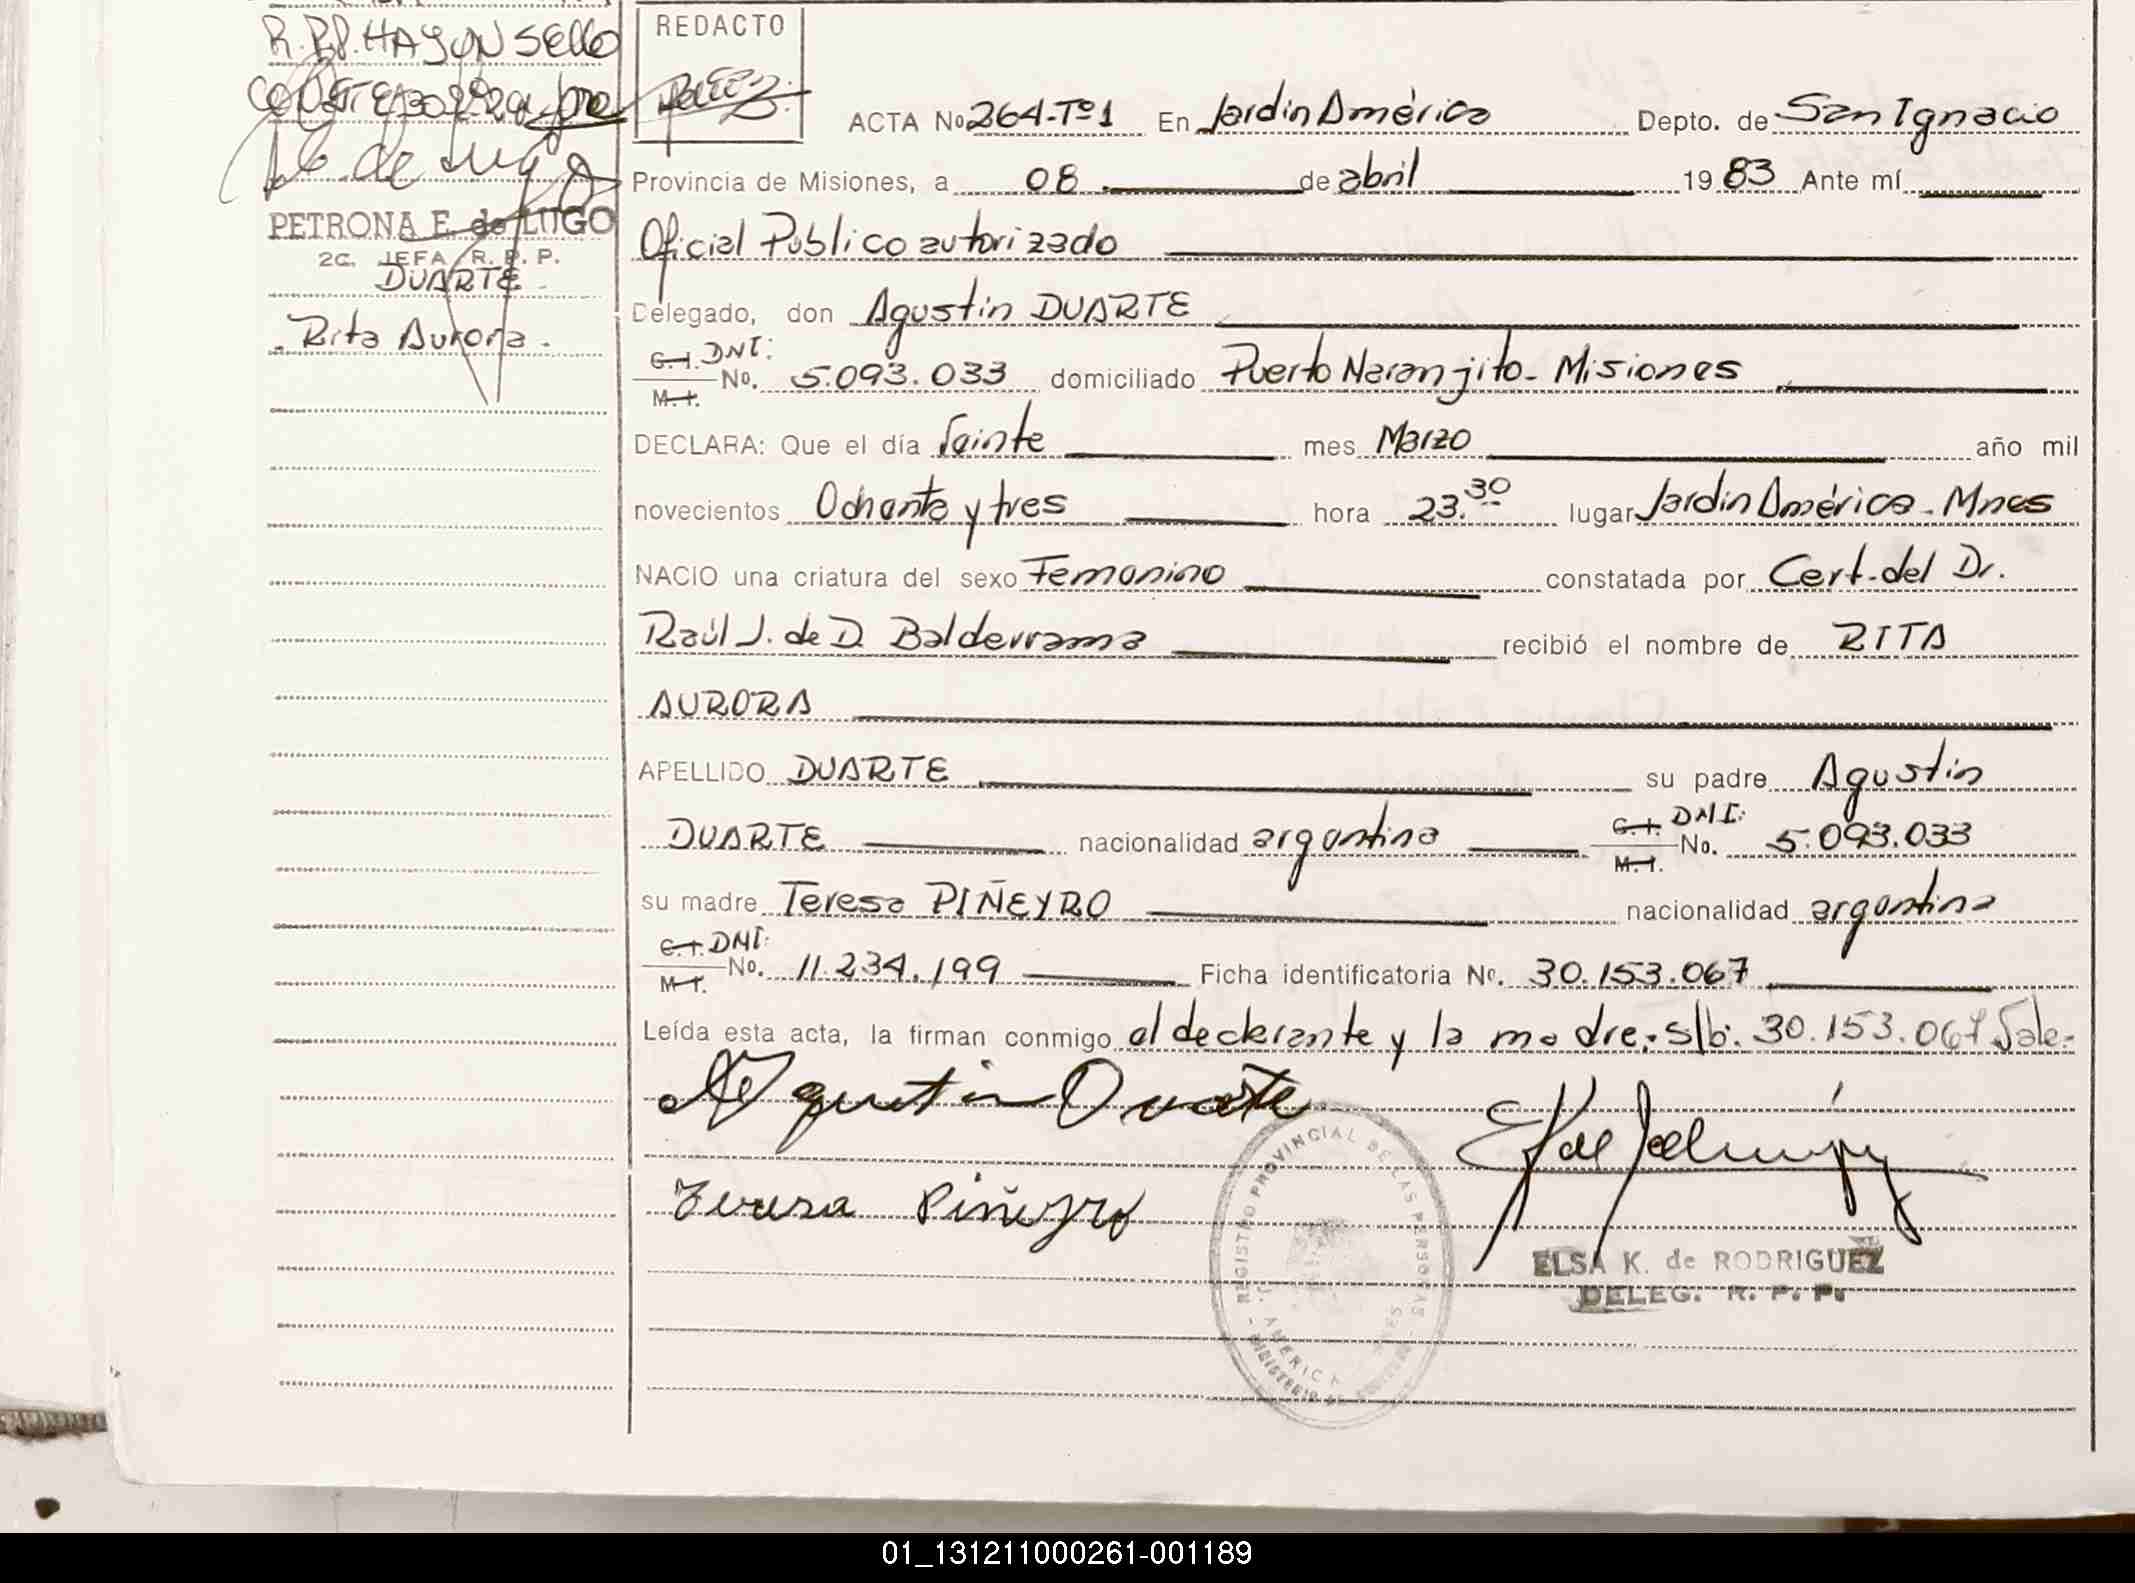 R.P.P. HAY UN SELLO
PETRONA E. de LUGO
2C. JEFA R. P. P.
DUARTE
Rita Aurora.
REDACTO
ACTA No 264-Tº1 En Jardin América Depto. de San Ignacio
Provincia de Misiones, a 08 de abril 1983 Ante mí
Oficial Público autorizado
Delegado, don Agustin DUARTE
C.I. DNI:
M.I. No. 5.093.033 domiciliado Puerto Naranjito - Misiones
DECLARA: Que el día Veinte mes Marzo año mil
novecientos Ochenta y tres hora 23.30 lugar Jardin América - Mnes
NACIO una criatura del sexo Femenino constatada por Cert. del Dr.
Raúl J. de D. Balderrama recibió el nombre de RITA
AURORA
APELLIDO DUARTE su padre Agustin
DUARTE nacionalidad argentina C.I. DNI: M.I. No. 5.093.033
su madre Teresa PIÑEYRO nacionalidad argentina
C.I. DNI:
M.I. No. 11.234.199 Ficha identificatoria No. 30.153.067
Leída esta acta, la firman conmigo el declarante y la madre.- s/b: 30.153.067 Vale.-
Agustin Duarte
Teresa Piñeyro
REGISTRO PROVINCIAL DE LAS PERSONAS
AMERICA
MINISTERIO DE GOBIERNO
ELSA K. de RODRIGUEZ
DELEG. R. P. P.
01_131211000261-001189